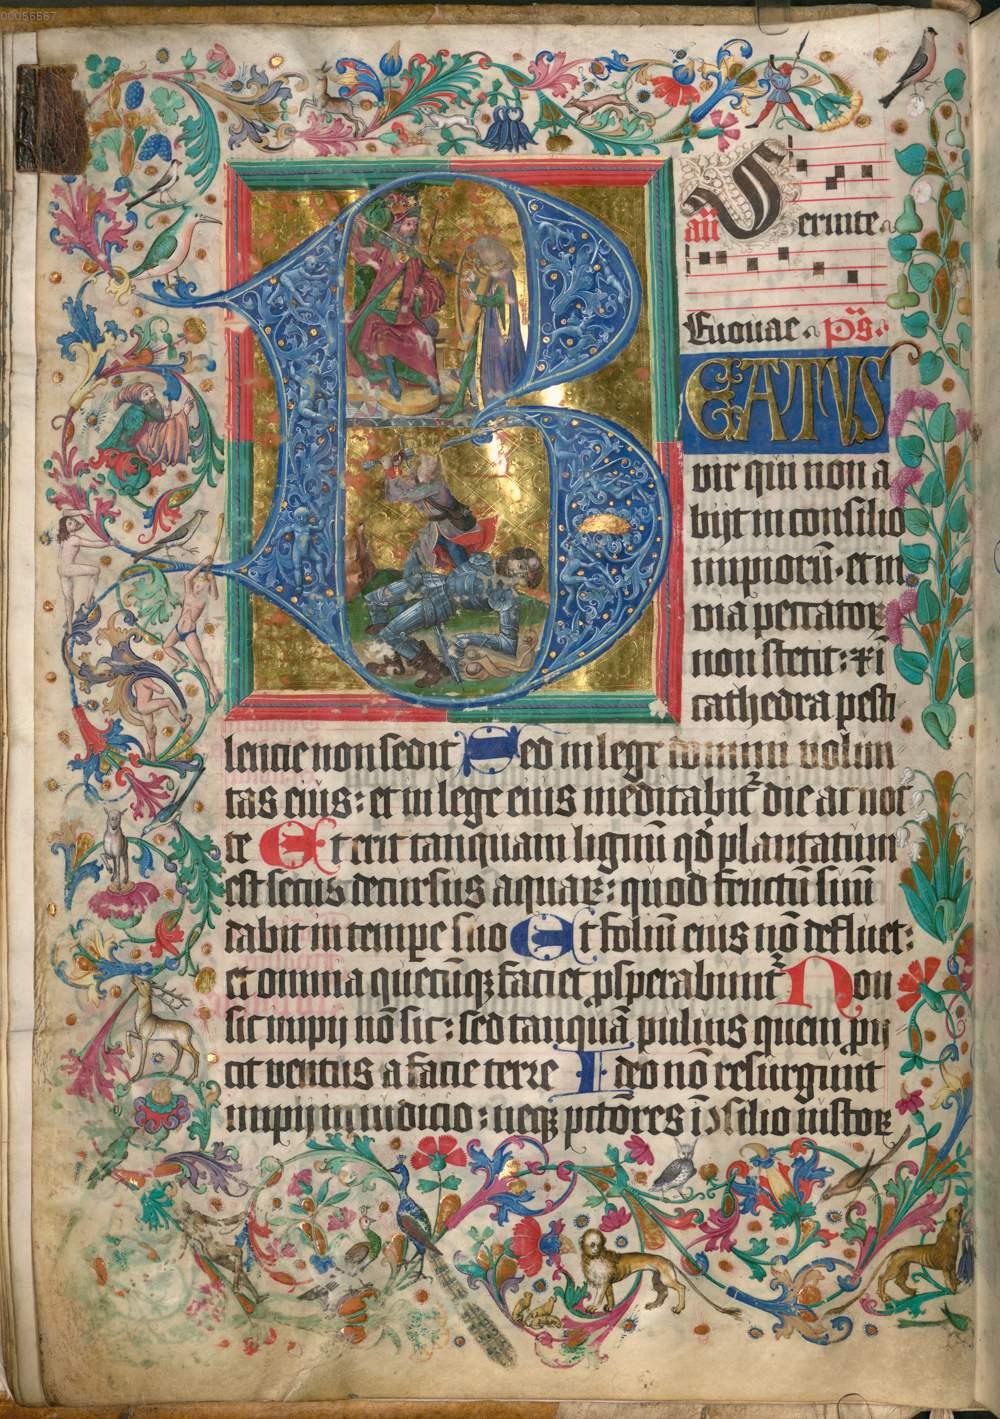 00056567
B
añ Venite
Euouae. ps.
EATUS
vir qui non a
bijt in consilio
impiorū. et in
via peccatoꝝ
non stetit: ⁊ ī
cathedra pesti
lencie non sedit Sed in lege domini volun
tas eius: et in lege eius meditabit᷑ die ac noc
te Et erit tanquam lignū qd̓ plantatum
est secus decursus aquaꝝ: quod fructū suū
dabit in tempe suo Et foliū eius nō defluet:
et omnia quecūqꝫ faciet psperabunt᷑ Non
sic impij nō sic: sed tanquā pulvis quem pij
cit ventus a facie terre Ideo nō resurgunt
impij in iudicio: neqꝫ pctōres ī ɔsilio iustoꝝ